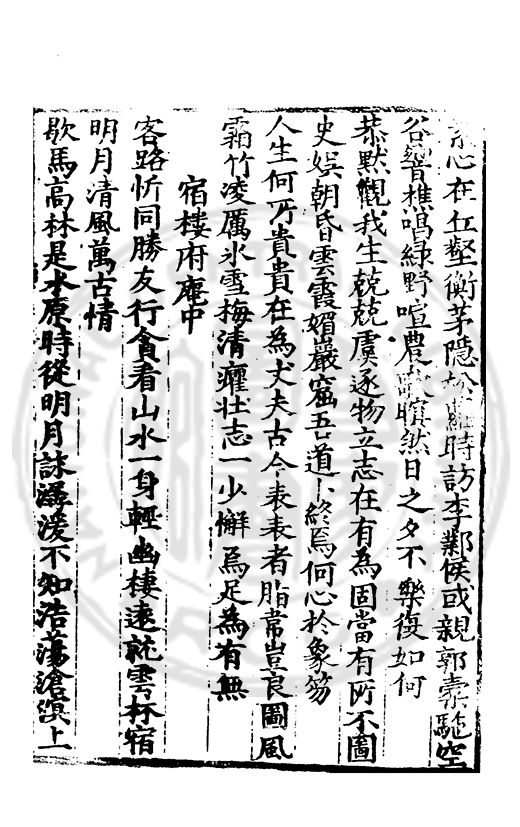 心在丘壑衡茅隱於蘿時訪李鄴侯或親郭橐駞空
谷響樵唱綠野喧農歌暝然日之夕不樂復如何
恭默觀我生兢兢虞逐物立志在有為固當有所不圖
史娛朝昏雲霞媚巖窟吾道卜終焉何心於象笏
人生何所貴貴在為丈夫古今表表者脂韋豈良圖風
霜竹凌厲氷雪梅清癯壯志一少懈焉足為有無
宿棲府庵中
客路忻同勝友行貪看山水一身輕幽棲遠就雲林宿
明月清風萬古情
歇馬高林是水原時從明月詠潺湲不知浩蕩滄溟上